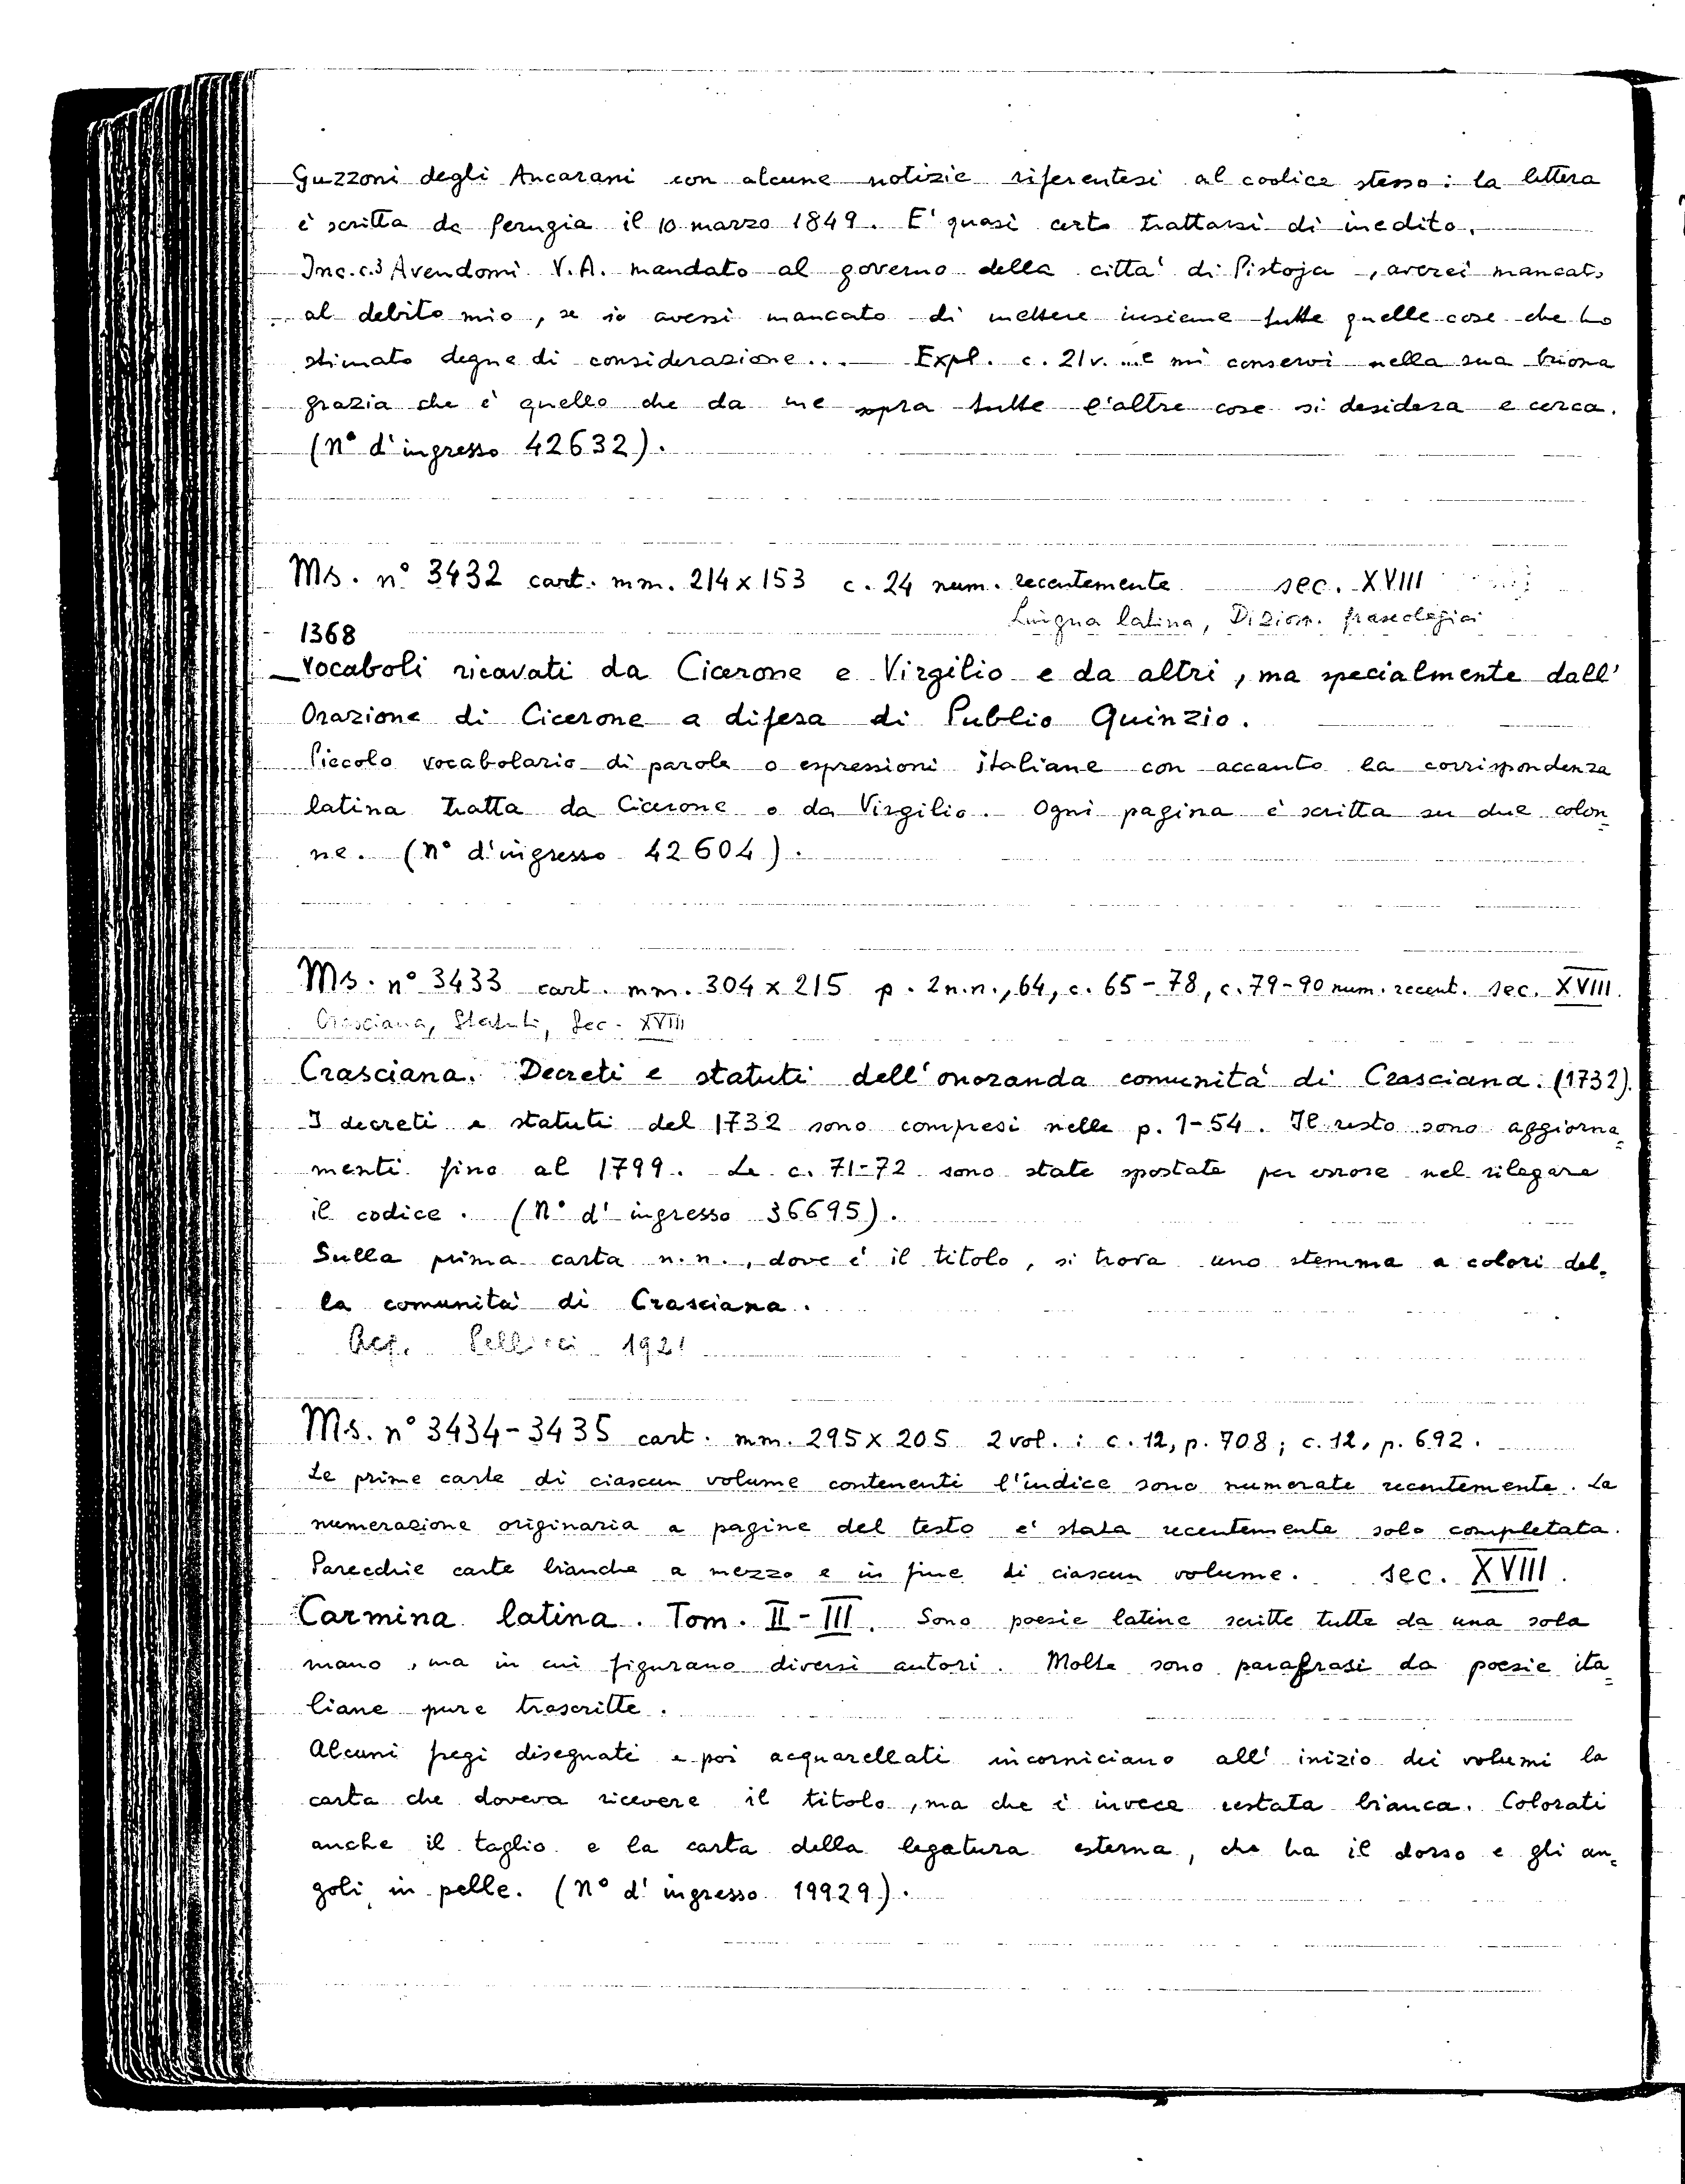 Guzzoni degli Ancarani con alcune notizie riferentesi al codice stesso: la lettera
è scritta da Perugia il 10 marzo 1849. E' quasi certo trattarsi di inedito.
Inc. c.3 Avendomi V.A. mandato al governo della città di Pistoja, averei mancato
al debito mio, se io avessi mancato di mettere insieme tutte quelle cose che ho
stimato degne di considerazione... Expl. c. 21v. ...e mi conservi nella sua buona
grazia che è quello che da me sopra tutte l'altre cose si desidera e cerca.
(N° d'ingresso 42632).
Ms. n° 3432 cart. mm. 214x153 c. 24 num. recentemente sec. XVIII
Lingua latina, Dizion. fraseologici
1368
Vocaboli ricavati da Cicerone e Virgilio e da altri, ma specialmente dall'
Orazione di Cicerone a difesa di Publio Quinzio.
Piccolo vocabolario di parole o espressioni italiane con accanto la corrispondenza
latina tratta da Cicerone o da Virgilio. Ogni pagina è scritta su due colon=
ne. (N° d'ingresso 42604).
Ms. n° 3433 cart. mm. 304x215 p. 2 n.n., 64, c. 65-78, c. 79-90 num. recent. sec. XVIII.
Crasciana, Statuti, Sec. XVIII
Crasciana. Decreti e statuti dell'onoranda comunità di Crasciana. (1732).
I decreti e statuti del 1732 sono compresi nelle p. 1-54. Il resto sono aggiorna=
menti fino al 1799. Le c. 71-72 sono state spostate per errore nel rilegare
il codice. (N° d'ingresso 36695).
Sulla prima carta n.n., dove è il titolo, si trova uno stemma a colori del=
la comunità di Crasciana.
Acq. 1921
Ms. n° 3434-3435 cart. mm. 295x205 2 vol.: c. 12, p. 708; c. 12, p. 692.
Le prime carte di ciascun volume contenenti l'indice sono numerate recentemente. La
numerazione originaria a pagine del testo e' stata recentemente solo completata.
Parecchie carte bianche a mezzo e in fine di ciascun volume. sec. XVIII.
Carmina latina. Tom. II-III. Sono poesie latine scritte tutte da una sola
mano, ma in cui figurano diversi autori. Molte sono parafrasi da poesie ita=
liane pure trascritte.
Alcuni fregi disegnati e poi acquarellati incorniciano all'inizio dei volumi la
carta che doveva ricevere il titolo, ma che è invece restata bianca. Colorati
anche il taglio e la carta della legatura esterna, che ha il dorso e gli an=
goli in pelle. (N° d'ingresso 19929).